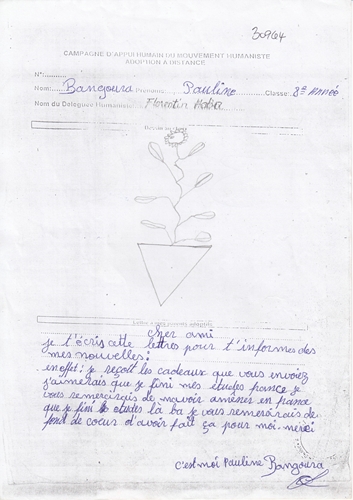 30964
CAMPAGNE D'APPUI HUMAIN DU MOUVEMENT HUMANISTE
ADOPTION A DISTANCE
N°:
Nom: Bangoura Prénoms: Pauline Classe: 8e Année
Nom du Délégué Humaniste: Florentin Maba
cher ami
je t'écris cette lettres pour t'informes des
mes nouvelles:
ineffet: je reçoit les cadeaux que vous envoiez
j'aimerais que je fini mes études france je
vous remercirais de m'avoir améner en france
que je fini études là ba je vous remercirais de
fond de cœur d'avoir fait ça pour moi. merci
c'est moi Pauline Bangoura